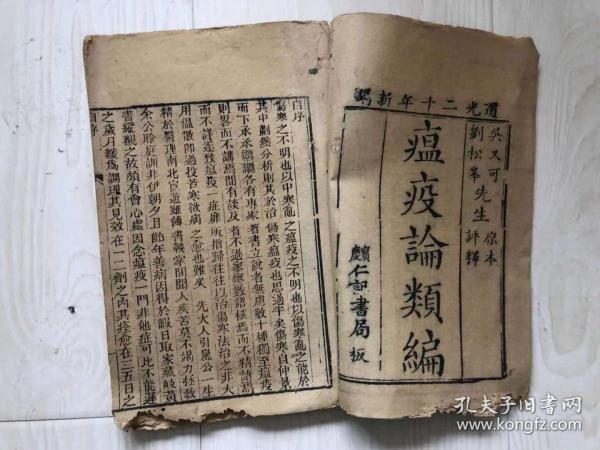 道光二十年新鐫
吳又可先生原本
劉松峯先生評釋
瘟疫論類編
仁記書局板
自序
傷寒之不明也以中寒亂之瘟疫之不明也以傷寒亂之能於
其中劃然分析則其於治傷寒瘟疫也思過半矣傷寒自仲景
而下承承繼繼各有專家著書立說者無慮數十種獨至瘟疫
則畧而不講焉間有談及者不過寥寥數語核焉而不精語焉
而不詳遂致瘟疫一症靡所指歸往往以治傷寒法治之非大
用溫散即過投苦寒欲病之愈也難矣 先大人引嵐公一生
精於醫理南北宦遊雖簿書鞅掌間聞人疾苦莫不竭力拯救
余公聆庭訓非伊朝夕且節年善病因得於暇日取家藏岐黃
書縱觀之故頗有會心處因念瘟疫一門非他症可比不能遲
之歲月緩爲調理其見效在一二劑之內其痊愈在三五日之
自序
孔夫子旧书网
www.kongfz.com